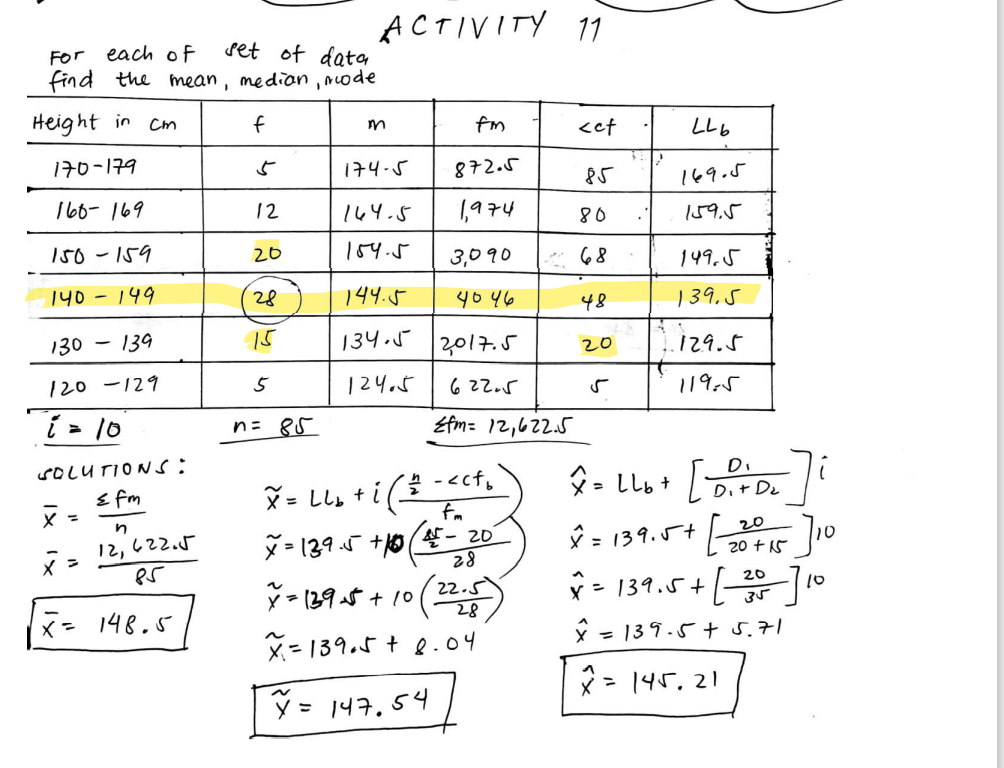 ACTIVITY 11
For each of set of data
find the mean, median, mode
Height in cm f m fm <cf LLb
170-179 5 174.5 872.5 85 169.5
160-169 12 164.5 1,974 80 159.5
150-159 20 154.5 3,090 68 149.5
140-149 28 144.5 4046 48 139.5
130-139 15 134.5 2,017.5 20 129.5
120-129 5 124.5 622.5 5 119.5
i = 10 n = 85 Σfm = 12,622.5
SOLUTIONS:
x̄ = Σfm/n
x̄ = 12,622.5/85
x̄ = 148.5
x̃ = LLb + i (n/2 - <cfb / fm)
x̃ = 139.5 + 10 (85/2 - 20 / 28)
x̃ = 139.5 + 10 (22.5/28)
x̃ = 139.5 + 8.04
x̃ = 147.54
x̂ = LLb + [D1 / D1 + D2] i
x̂ = 139.5 + [20 / 20 + 15] 10
x̂ = 139.5 + [20/35] 10
x̂ = 139.5 + 5.71
x̂ = 145.21